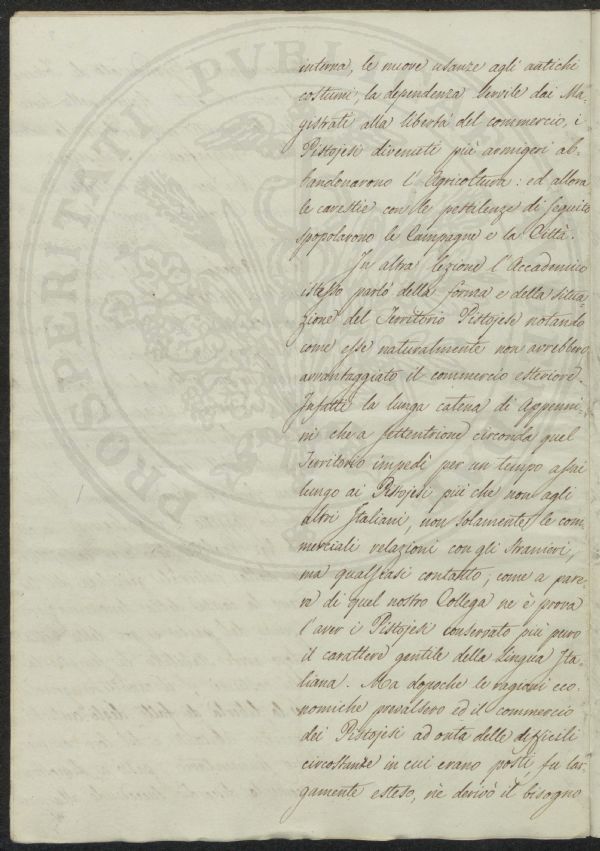 interna, le nuove usanze agli antichi
costumi, la dependenza servile dai Ma-
gistrati alla libertà del commercio, i
Pistojesi divenuti più armigeri ab-
bandonarono l'Agricoltura: ed allora
le carestie con le pestilenze di seguito
spopolarono le Campagne e la Città.
In altra lezione l'Accademico
istesso parlò della forma e della situa-
zione del Territorio Pistojese notando
come esse naturalmente non avrebbero
avvantaggiato il commercio esteriore.
Infatti la lunga catena di Appenni-
ni che a settentrione circonda quel
Territorio impedì per un tempo assai
lungo ai Pistojesi più che non agli
altri Italiani, non solamente le com-
merciali relazioni con gli stranieri,
ma qualsiasi contatto; come a pare-
re di quel nostro Collega ne è prova
l'aver i Pistojesi conservato più puro
il carattere gentile della Lingua Ita-
liana. Ma dopoche le ragioni eco-
nomiche prevalsero ed il commercio
dei Pistojesi ad onta delle difficili
circostanze in cui erano posti fu lar-
gamente esteso, ne derivò il bisogno
PROSPERITATI PUBLI